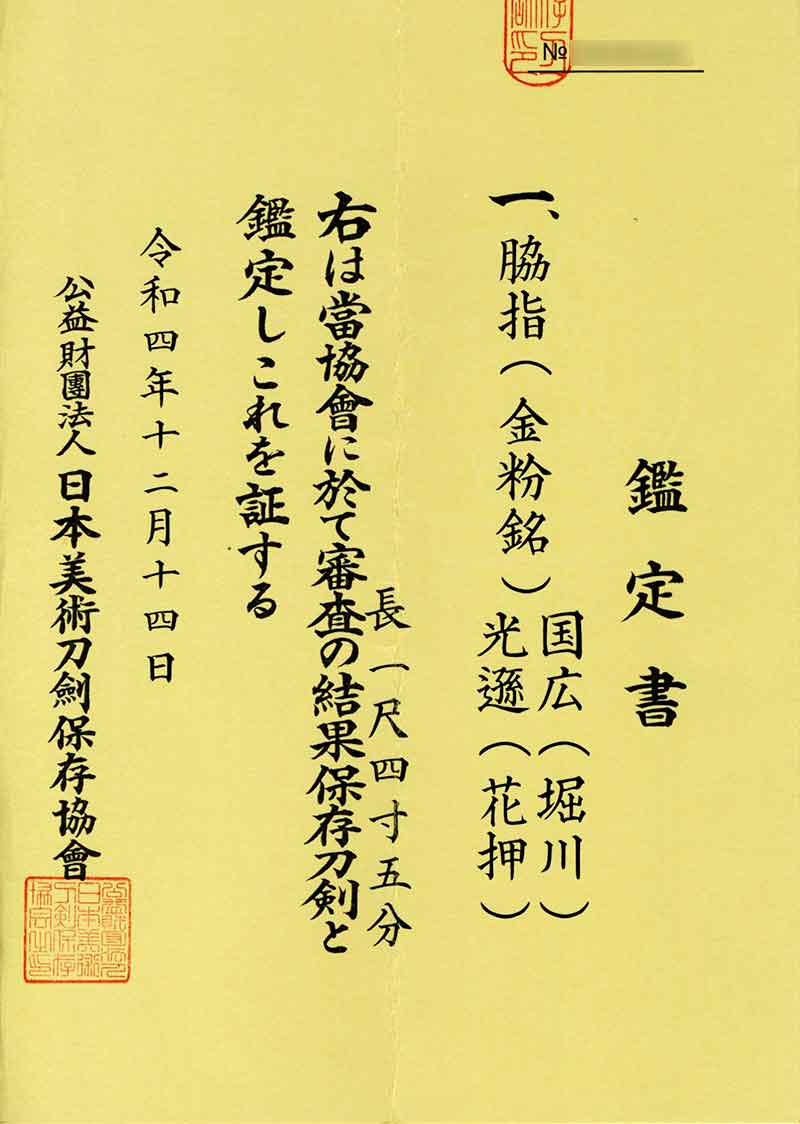 №
鑑定書
一、脇指（金粉銘）国広（堀川）
光遜（花押）
長一尺四寸五分
右は當協會に於て審査の結果保存刀剣と
鑑定しこれを証する
令和四年十二月十四日
公益財團法人日本美術刀劍保存協會